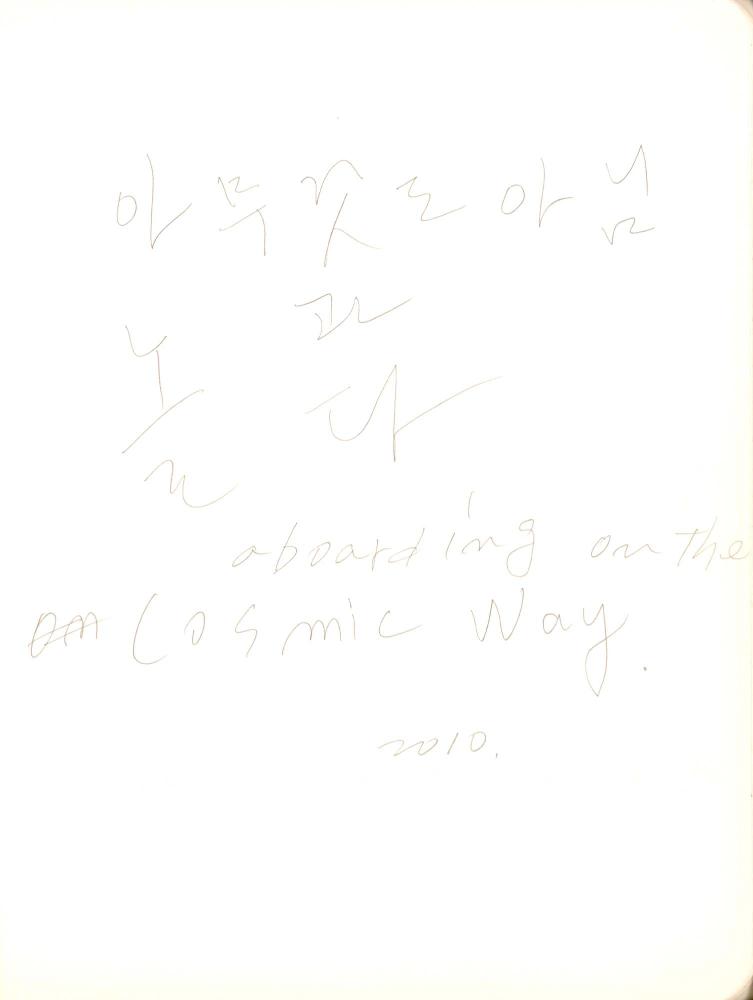 아무것도 아님
과
놀 다
aboarding on the
Cosmic Way.
2010.